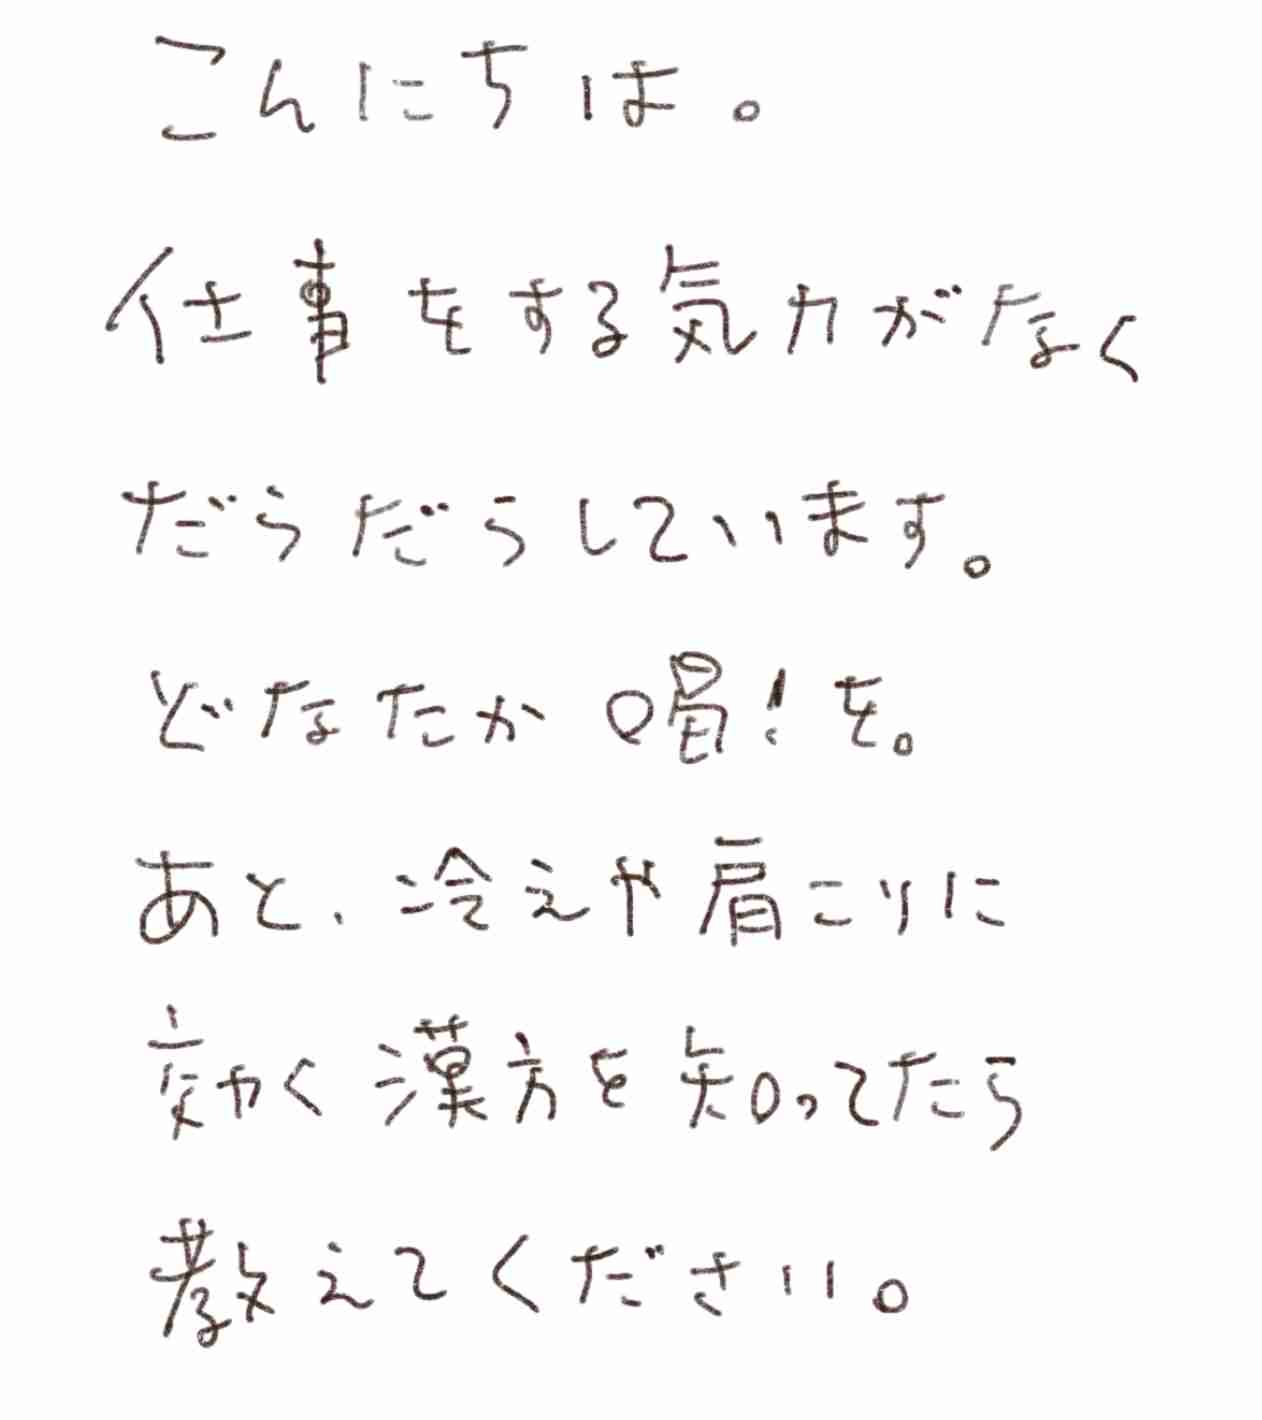 こんにちは。
仕事をする気力がなく
だらだらしています。
どなたか喝!を。
あと、冷えや肩こりに
効く漢方を知ってたら
教えてください。